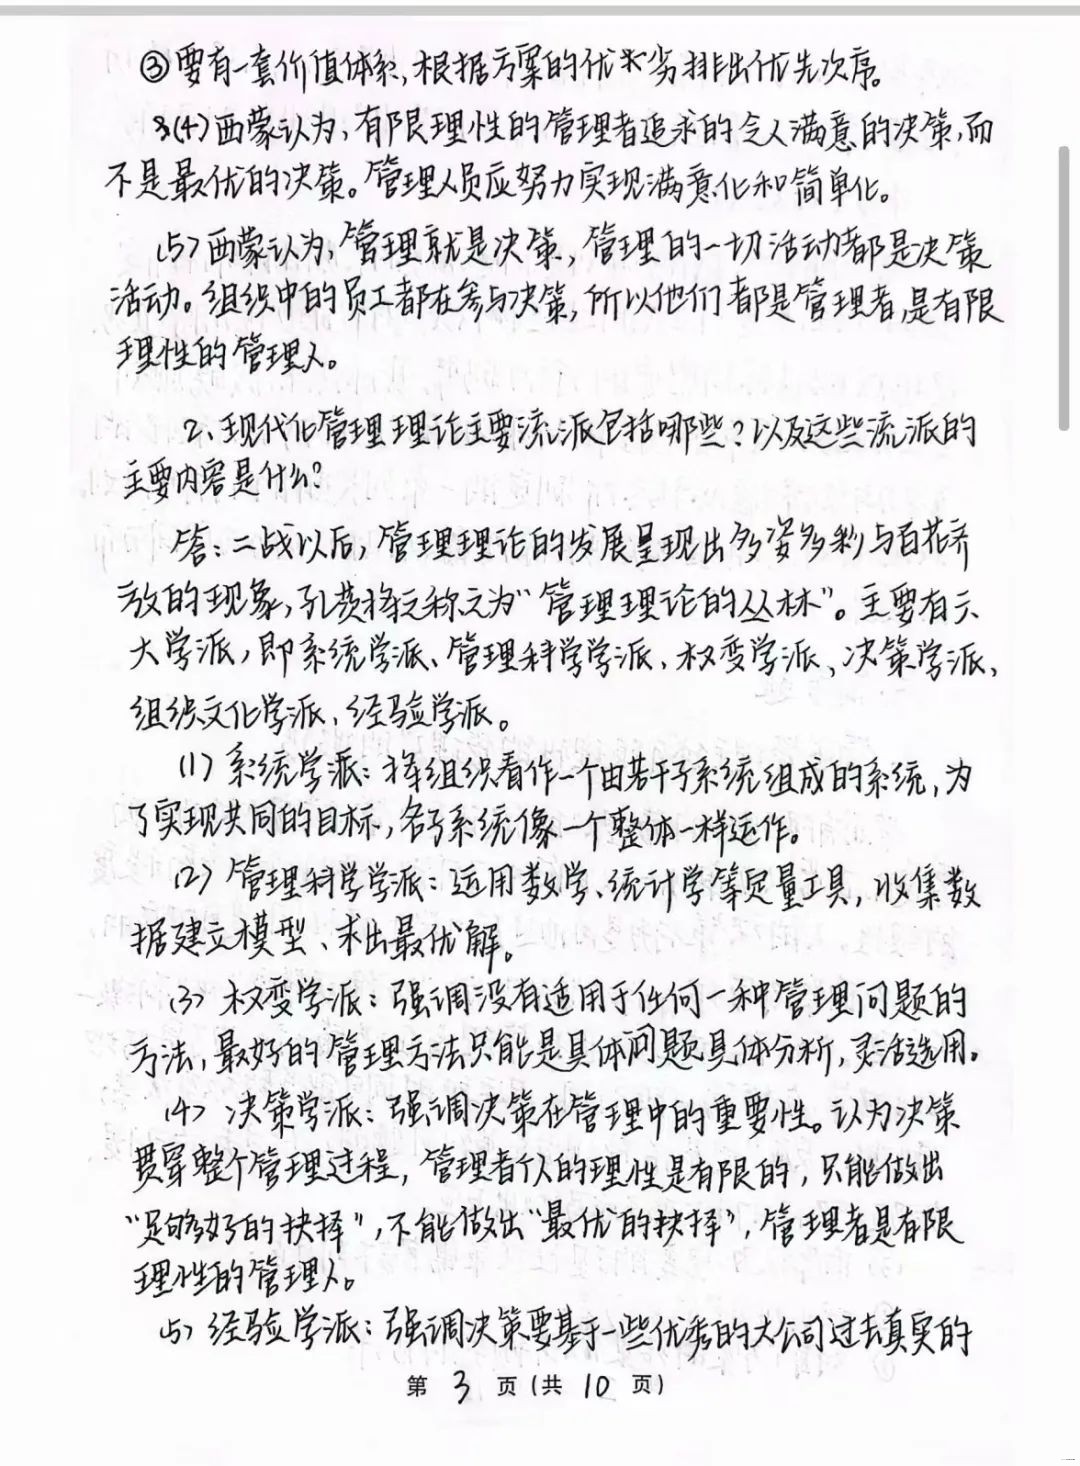 ③要有一套价值体系,根据方案的优劣排出优先次序。
(4)西蒙认为,有限理性的管理者追求的令人满意的决策,而
不是最优的决策。管理人员应努力实现满意化和简单化。
(5)西蒙认为,管理就是决策,管理的一切活动都是决策
活动。组织中的员工都在参与决策,所以他们都是管理者,是有限
理性的管理人。
2、现代化管理理论主要流派包括哪些?以及这些流派的
主要内容是什么?
答:二战以后,管理理论的发展呈现出多姿多彩与百花齐
放的现象,孔茨将之称之为“管理理论的丛林”。主要有六
大学派,即系统学派、管理科学学派、权变学派、决策学派、
组织文化学派、经验学派。
(1)系统学派:将组织看作一个由若干子系统组成的系统,为
了实现共同的目标,各子系统像一个整体一样运作。
(2)管理科学学派:运用数学、统计学等定量工具,收集数
据建立模型、求出最优解。
(3)权变学派:强调没有适用于任何一种管理问题的
方法,最好的管理方法只能是具体问题具体分析,灵活选用。
(4)决策学派:强调决策在管理中的重要性。认为决策
贯穿整个管理过程,管理者个人的理性是有限的,只能做出
“足够好的抉择”,不能做出“最优的抉择”,管理者是有限
理性的管理人。
(5)经验学派:强调决策要基于一些优秀的大公司过去真实的
第 3 页(共 10 页)